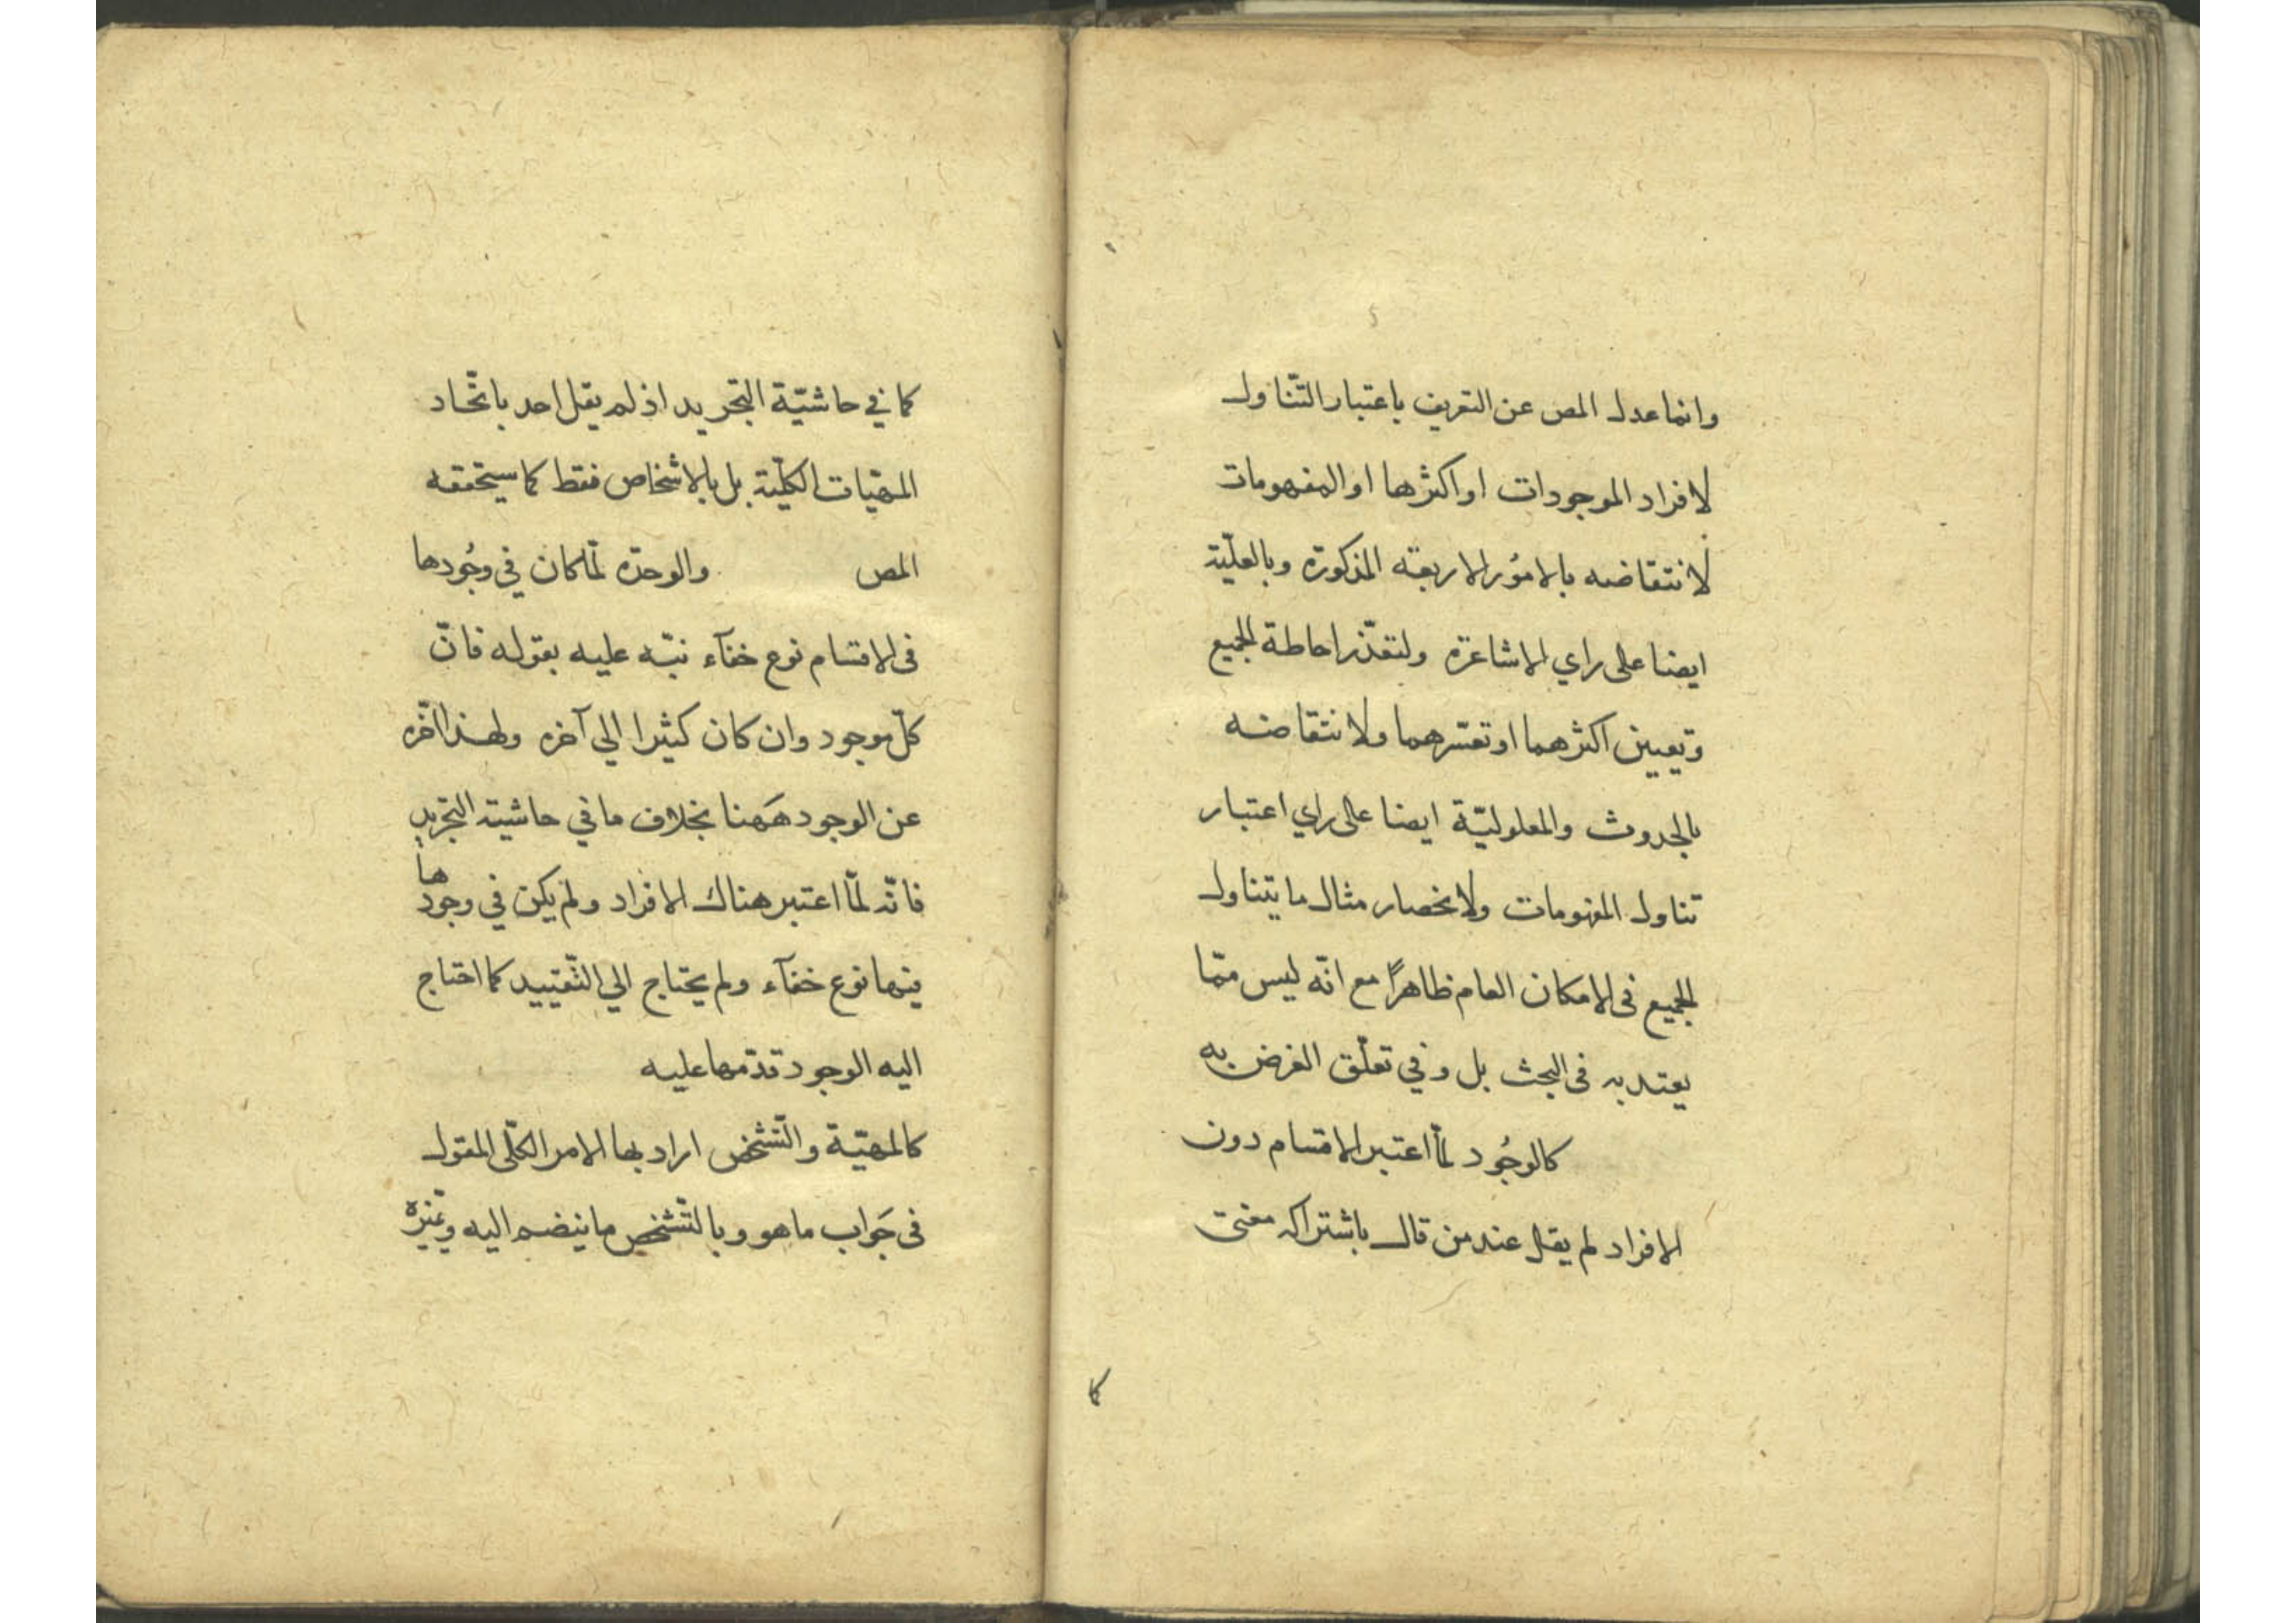 وانما عدل المص عن التعريف باعتبار التّناول
لافراد الموجودات او اكثرها او المفهومات
لانتقاضه بالامُور الاربعة المذكورة وبالعلّية
ايضا على راي الاشاعرة ولتعذّر احاطة الجميع
وتعيين اكثرهما او تعسّرهما ولانتقاضه
بالحدوث والمعلوليّة ايضا على راي اعتبار
تناول المفهومات ولانحصار مثال ما يتناول
الجميع فى الامكان العام ظاهراً مع انّه ليس ممّا
يعتد به فى البحث بل وفي تعلّق الغرض به
كالوجُود لمّا اعتبر الاقسام دون
الافراد لم يقل عند من قال باشتراكه معنى
كا
كما في حاشيّة التجريد اذ لم يقل احد باتّحاد
المهيّات الكليّة بل بالاشخاص فقط كما سيحققه
المص والوحدة لمّا كان في وجُودها
فى الاقسام نوع خفآء نبّه عليه بقوله فانّ
كلّ موجود وان كان كثيرا الي آخره ولهذا اخّره
عن الوجود هَهنا بخلاف ما في حاشية التجريد
فانّه لمّا اعتبر هناك الافراد ولم يكن في وجودها
فيها نوع خفآء ولم يحتاج الي التّقييد كما احتاج
اليه الوجود قدّمها عليه
كالمهيّة والتّشخّص اراد بها الامر الكلّى المقول
فى جَواب ما هو وبالتّشخّص ما ينضم اليه ويميّزه